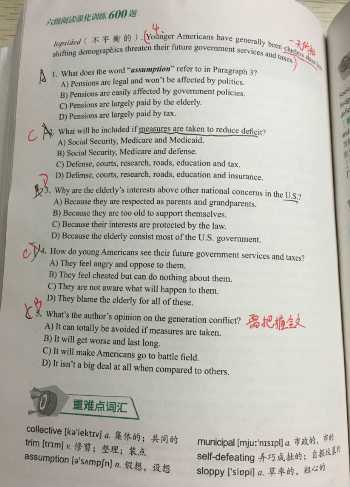 六级阅读强化训练600题
lopsided (不平衡的). Younger Americans have generally been clueless about how
shifting demographics threaten their future government services and taxes.
1. What does the word "assumption" refer to in Paragraph 3?
A) Pensions are legal and won't be affected by politics.
B) Pensions are easily affected by government policies.
C) Pensions are largely paid by the elderly.
D) Pensions are largely paid by tax.
C 2. What will be included if measures are taken to reduce deficit?
A) Social Security, Medicare and Medicaid.
B) Social Security, Medicare and defense.
C) Defense, courts, research, roads, education and tax.
D) Defense, courts, research, roads, education and insurance.
3. Why are the elderly's interests above other national concerns in the U.S.?
A) Because they are respected as parents and grandparents.
B) Because they are too old to support themselves.
C) Because their interests are protected by the law.
D) Because the elderly consist most of the U.S. government.
C 4. How do young Americans see their future government services and taxes?
A) They feel angry and oppose to them.
B) They feel cheated but can do nothing about them.
C) They are not aware what will happen to them.
D) They blame the elderly for all of these.
5. What's the author's opinion on the generation conflict? 需把握全文
A) It can totally be avoided if measures are taken.
B) It will get worse and last long.
C) It will make Americans go to battle field.
D) It isn't a big deal at all when compared to others.
重难点词汇
collective [kə'lektɪv] a. 集体的；共同的
trim [trɪm] v. 修剪；整理；装点
assumption [ə'sʌmpʃn] n. 假想，设想
municipal [mju:'nɪsɪpl] a. 市政的，市的
self-defeating 弄巧成拙的；自我拆台的
sloppy ['slɒpi] a. 草率的，粗心的